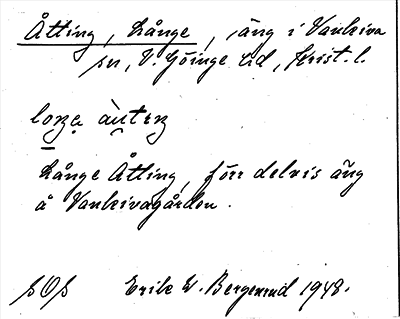 Åtting, Långe, äng i Vankiva
sn, V. Göinge hd, Krist. l.
Långe Åtting, förr delvis äng
å Vankivagården.
SOS Erik W. Bergerud 1948.